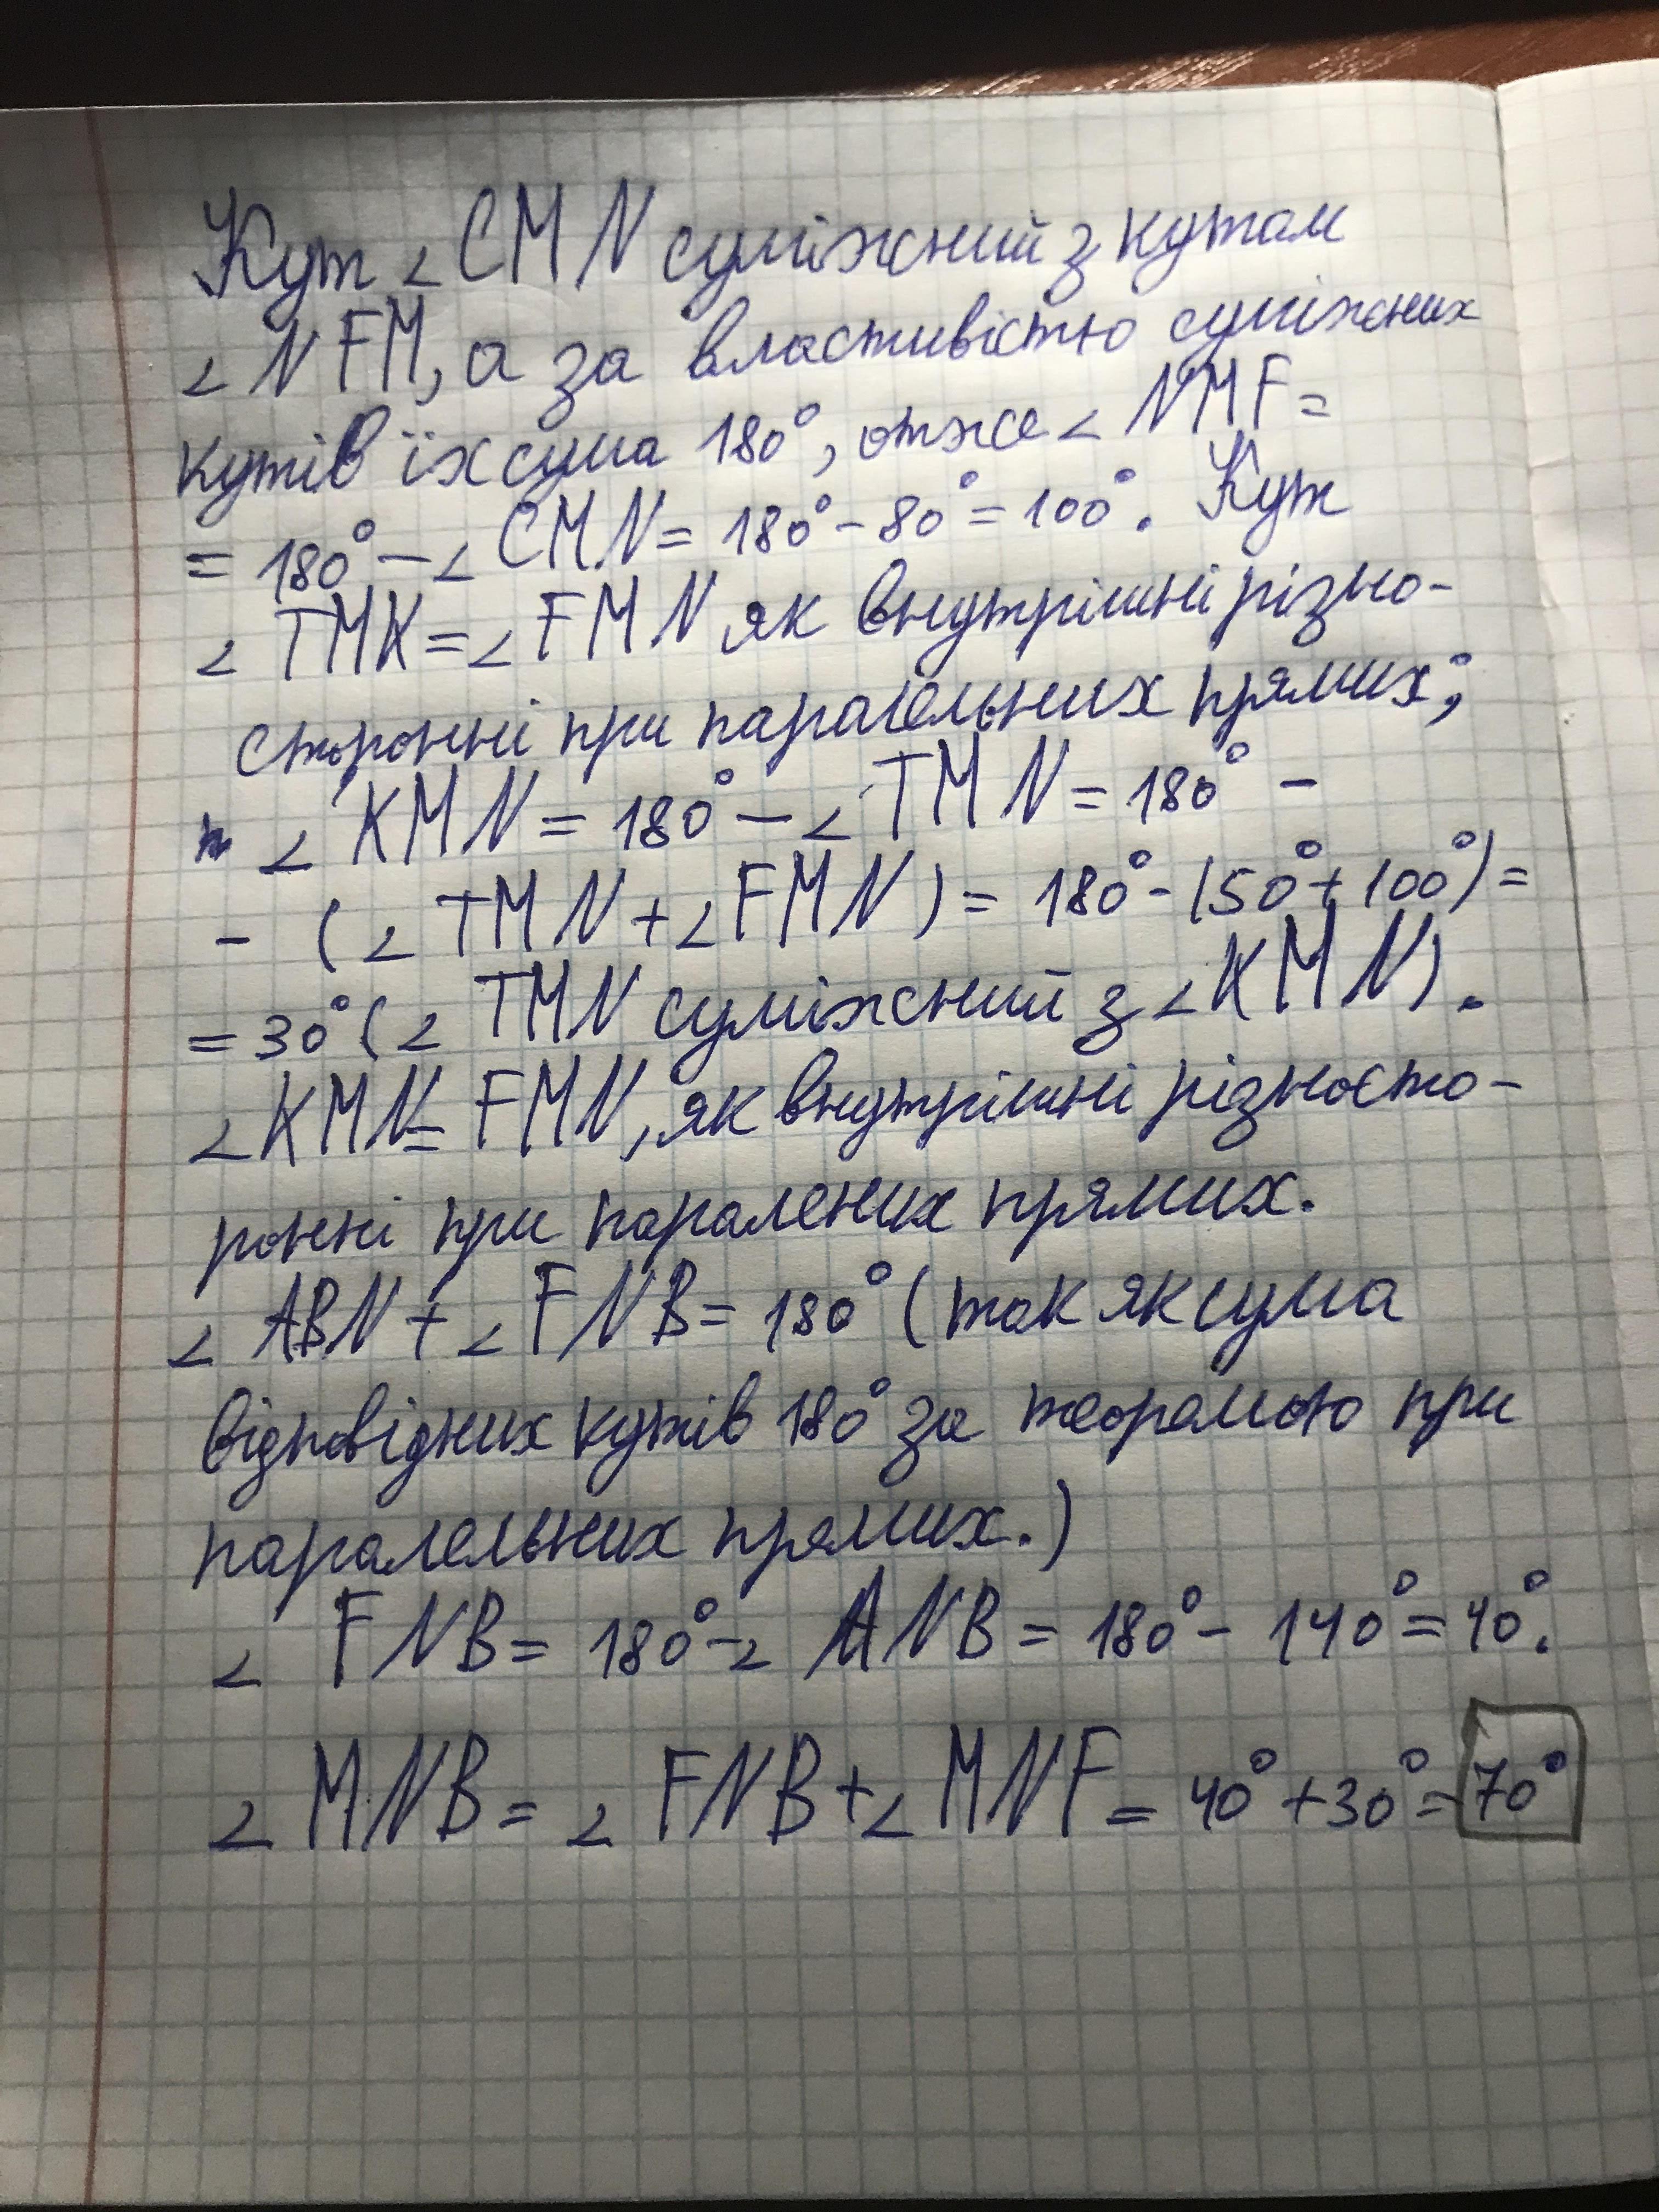 Кут ∠CMN суміжний з кутом
∠NFM, а за властивістю суміжних
кутів їх сума 180°, отже ∠NMF=
= 180° – ∠CMN = 180° – 80° = 100°. Кут
∠TMK = ∠FMN як внутрішні різно-
сторонні при паралельних прямих;
∠KMN = 180° – ∠TMN = 180° –
– (∠TMN + ∠FMN) = 180° – (50° + 100°) =
= 30° (∠TMN суміжний з ∠KMN).
∠KMN = FMN, як внутрішні різносто-
ронні при паралених прямих.
∠ABN + ∠FNB = 180° (так як сума
відповідних кутів 180° за теоремою при
паралельних прямих.)
∠FNB = 180° – ∠ANB = 180° – 140° = 40°.
∠MNB = ∠FNB + ∠MNF = 40° + 30° = 70°